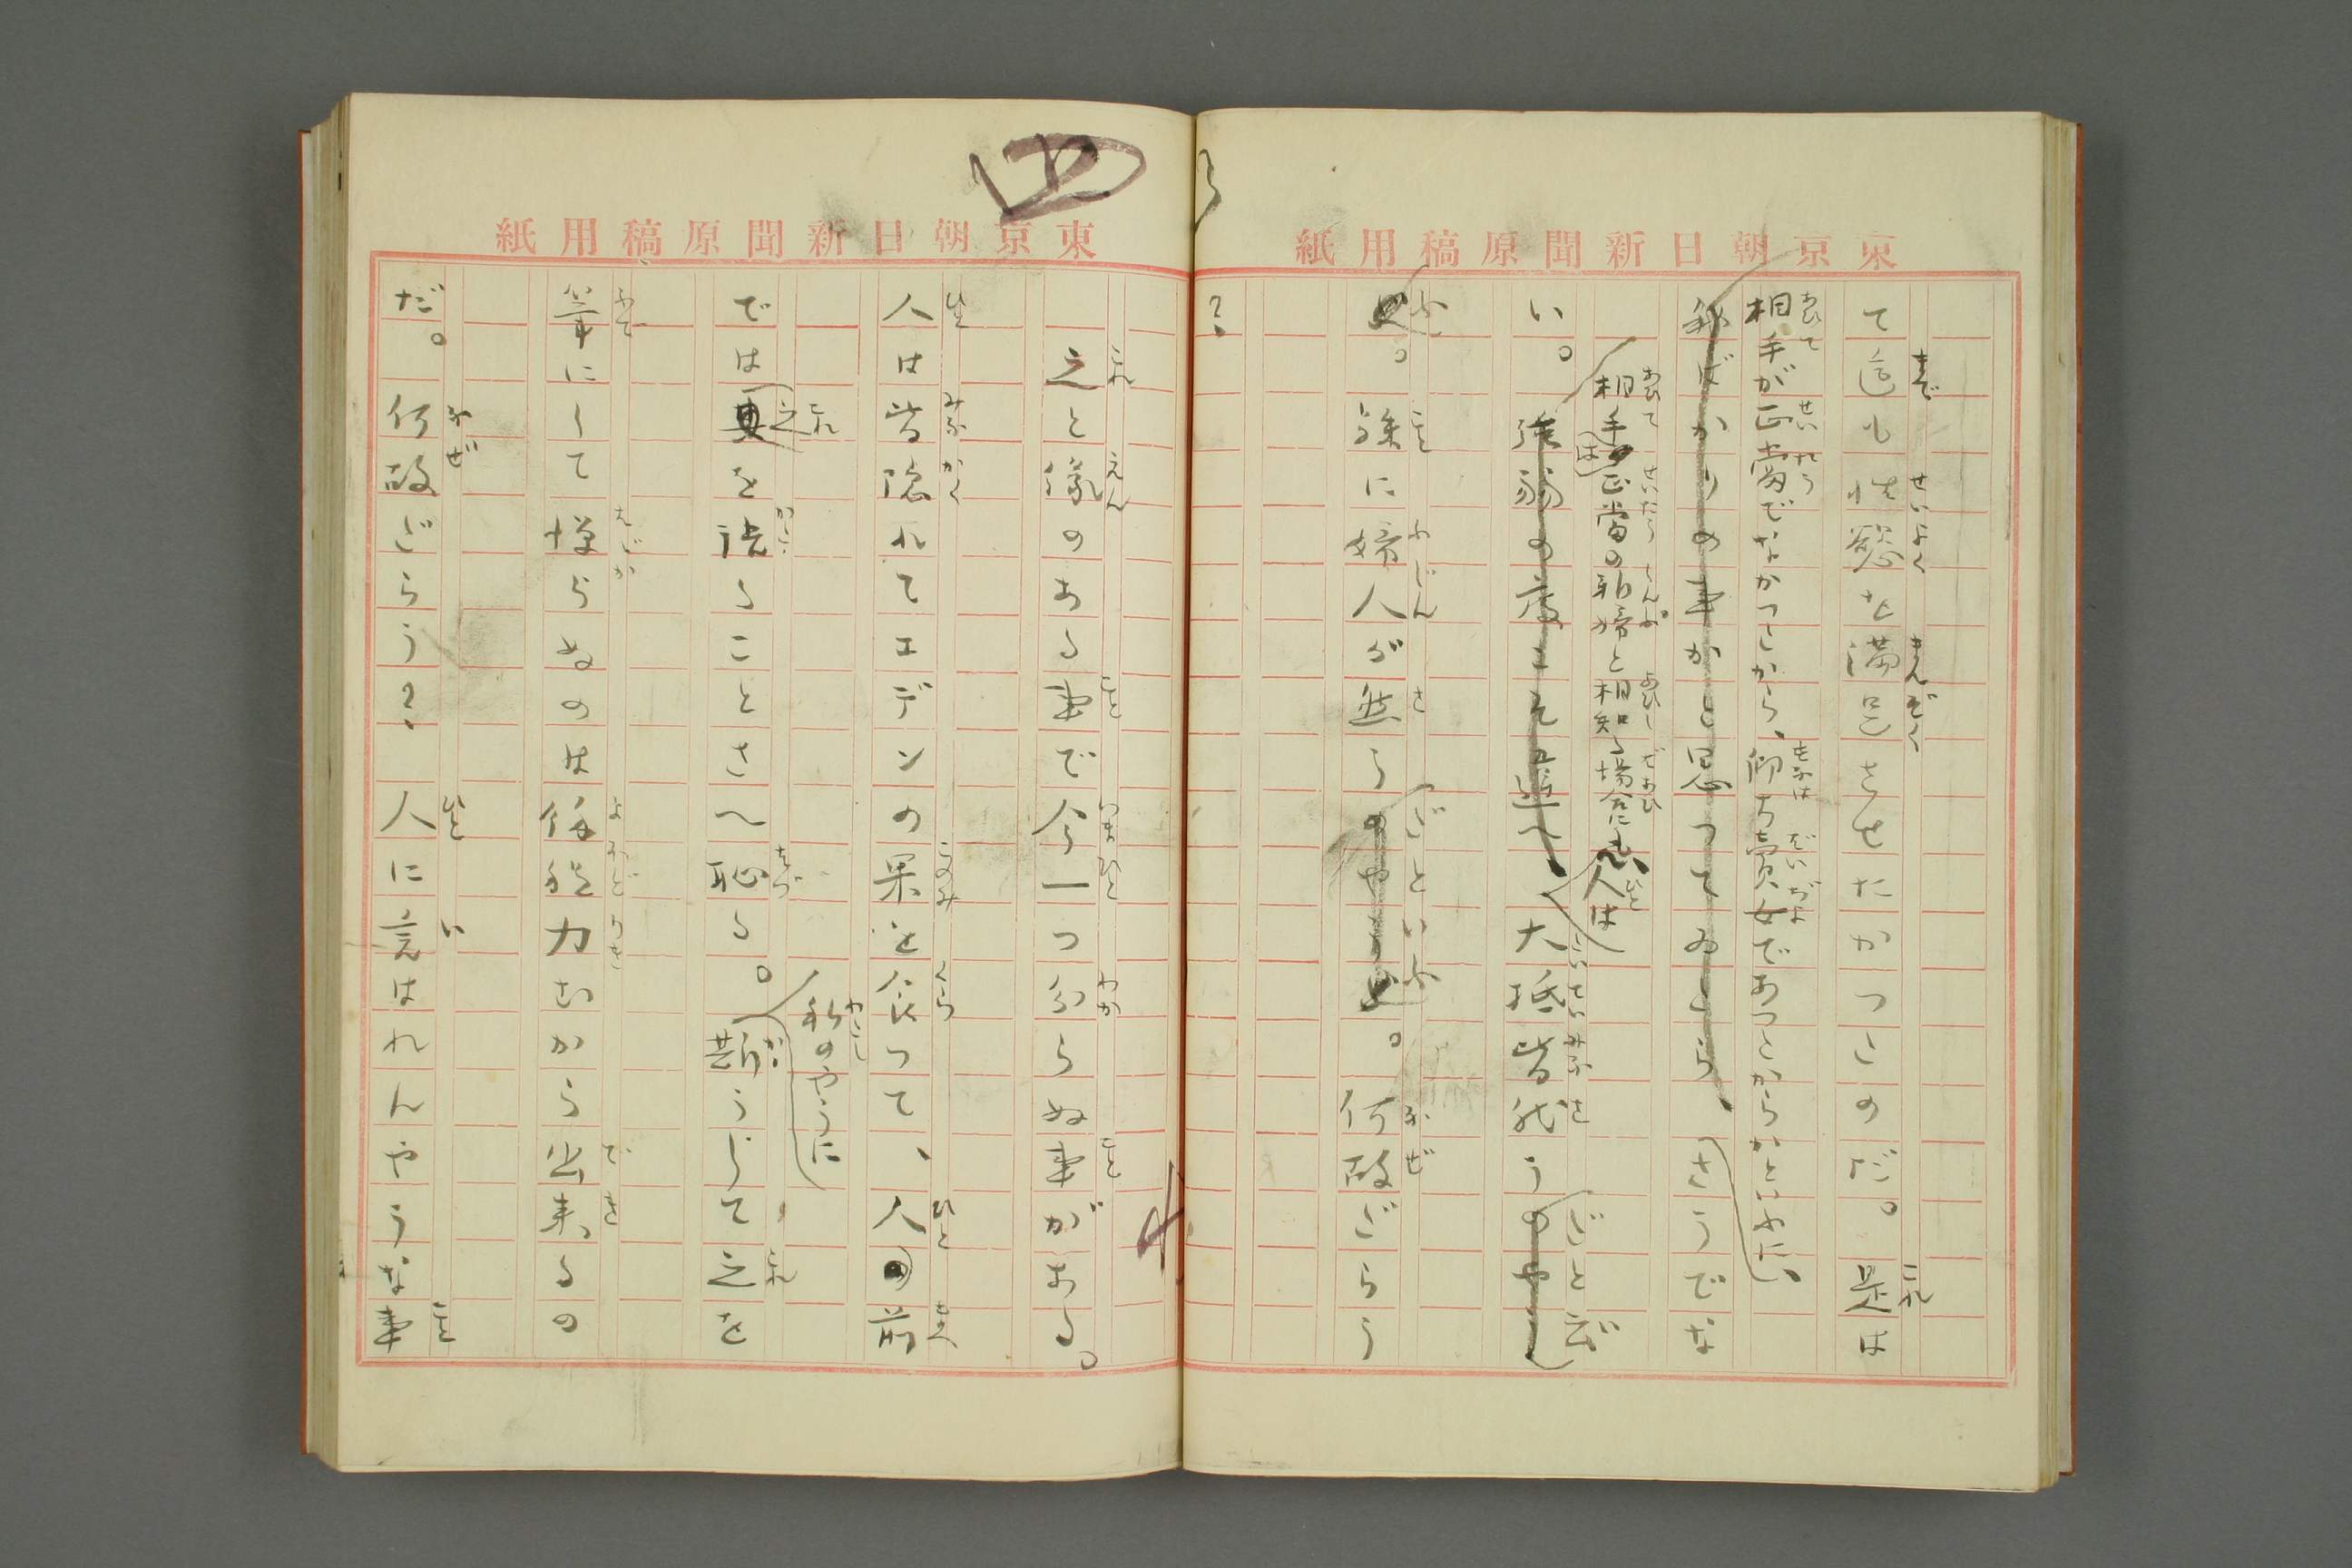 東京朝日新聞原稿用紙
て迄も性慾を満足させたかつたのだ。是は
相手が正當でなかつたから、即ち賣女であつたからかといふに、
私ばかりの事かと思つてゐたら、さうでな
い。
相手は正當の新婦と相知る場合にも、人は
大抵皆然うだと云
ふ。殊に婦人が然うだといふ。何故だらう
?
東京朝日新聞原稿用紙
四
之と縁のある事で今一つ分らぬ事がある。
人は皆隠れてエデンの果を食つて、人前
では之を語ることさへ恥る。
私のやうに
斯うして之を
筆にして憚らぬのは余程力むから出來るの
だ。何故だらう?人に言はれんやうな事